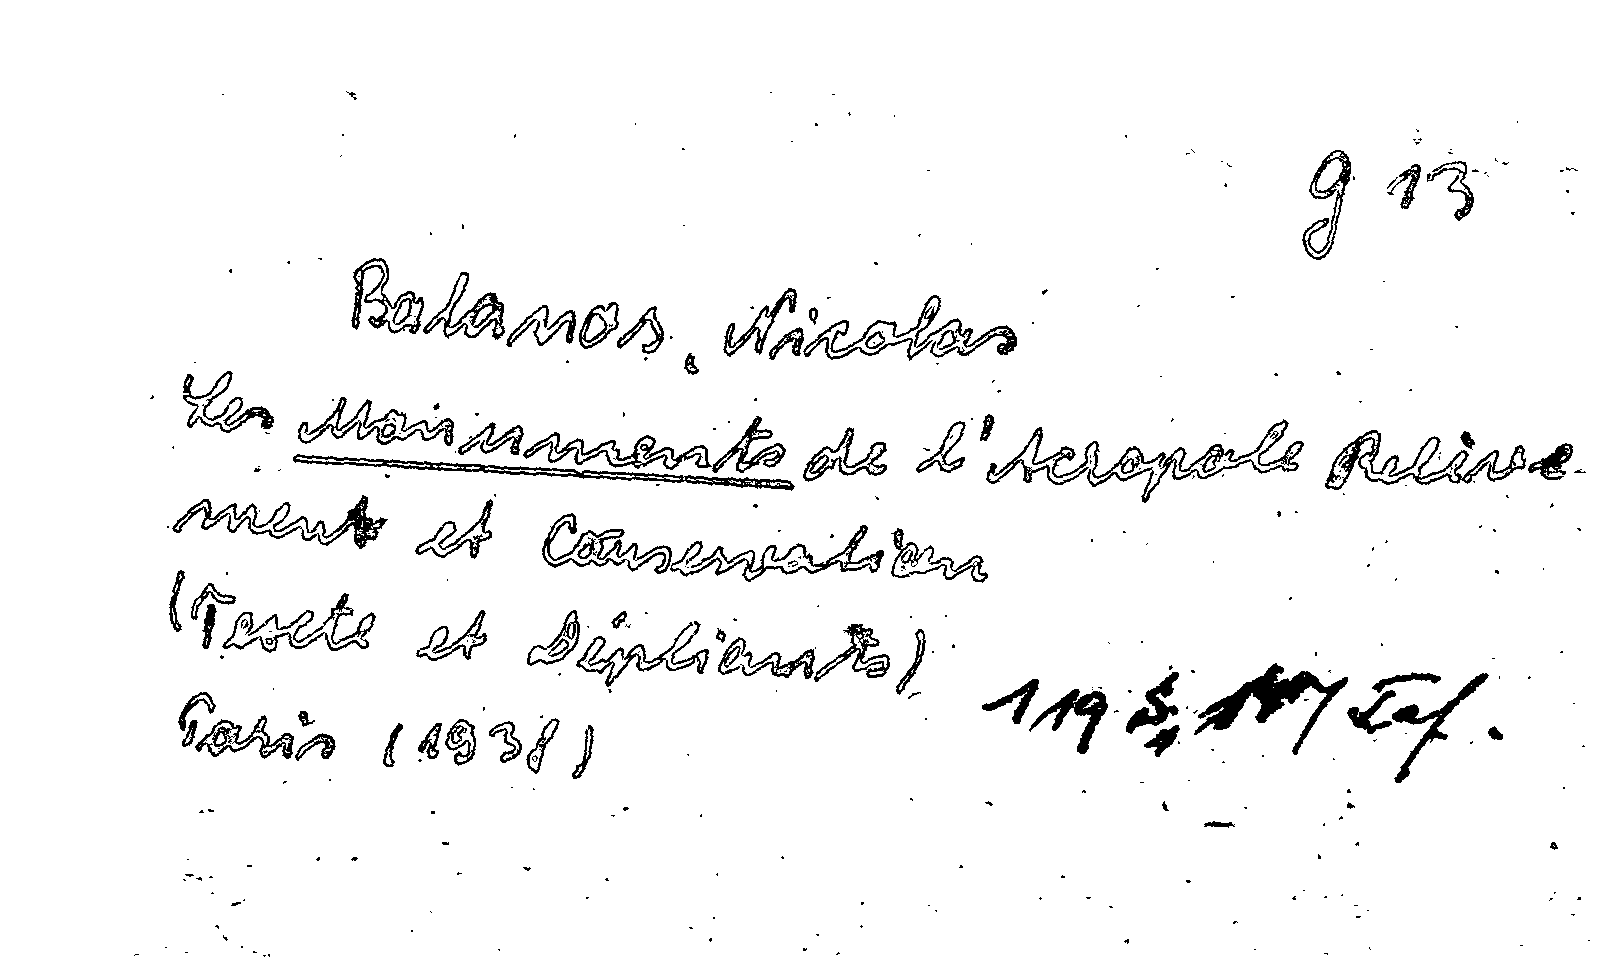 g 13
Balanos, Nicolas
Les Monuments de l'Acropole Relève-
ment et Conservation
(Texte et Dépliants)
Paris (1938)
119 S, Taf.